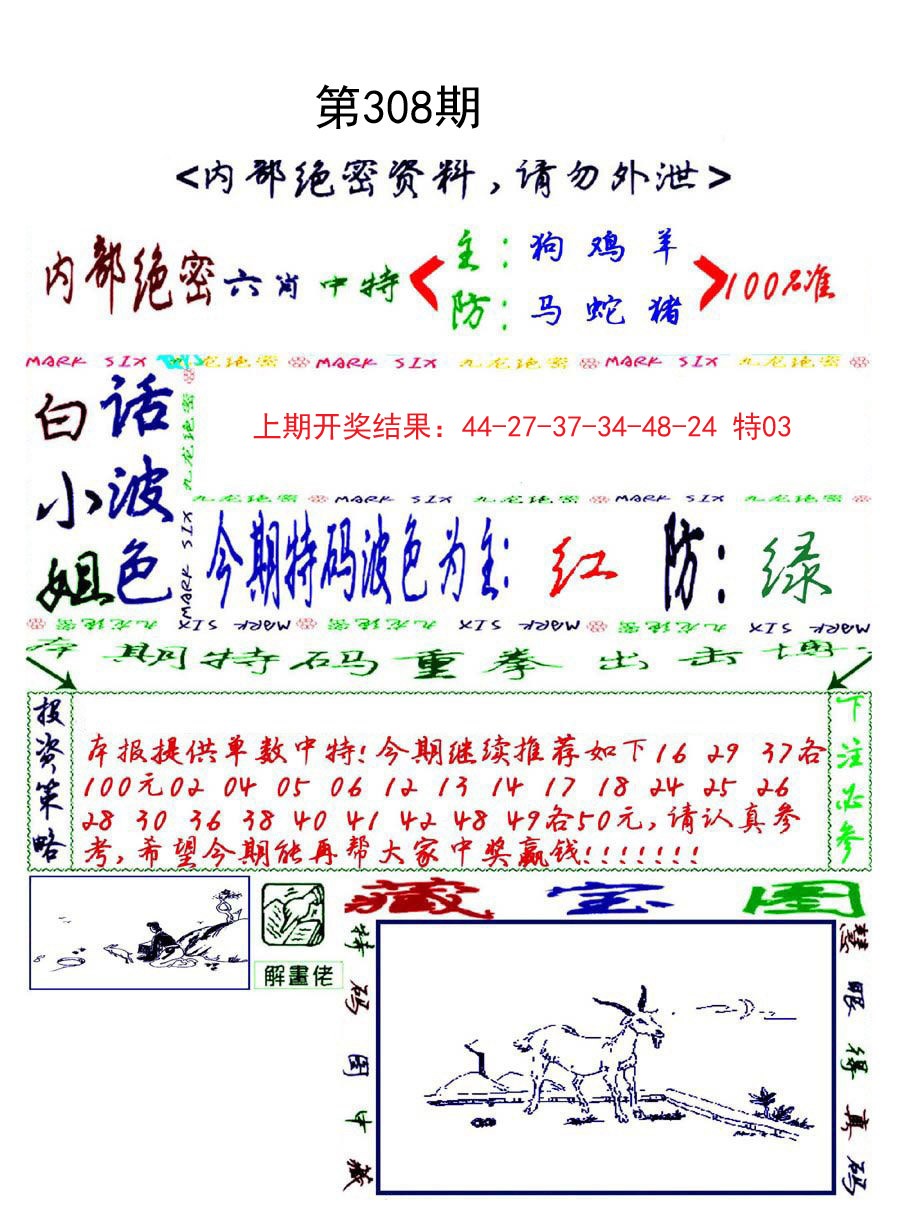 第308期
<内部绝密资料,请勿外泄>
内部绝密六肖中特
主:狗 鸡 羊
防:马 蛇 猪
100%准
MARK SIX 九龙绝密 MARK SIX 九龙绝密 MARK SIX 九龙绝密
白话
小波
姐色
九龙绝密
MARK SIX
上期开奖结果：44-27-37-34-48-24 特03
九龙绝密 MARK SIX 九龙绝密 MARK SIX 九龙绝密
今期特码波色为主: 红 防: 绿
九龙绝密 MARK SIX 九龙绝密 MARK SIX 九龙绝密 MARK SIX
期特码重拳出击
投资策略
本报提供单数中特!今期继续推荐如下16 29 37各
100元02 04 05 06 12 13 14 17 18 24 25 26
28 30 36 38 40 41 42 48 49各50元,请认真参
考,希望今期能再帮大家中奖赢钱!!!!!!!
下注必参
解畫佬
藏宝图
特码图中藏
慧眼得真码